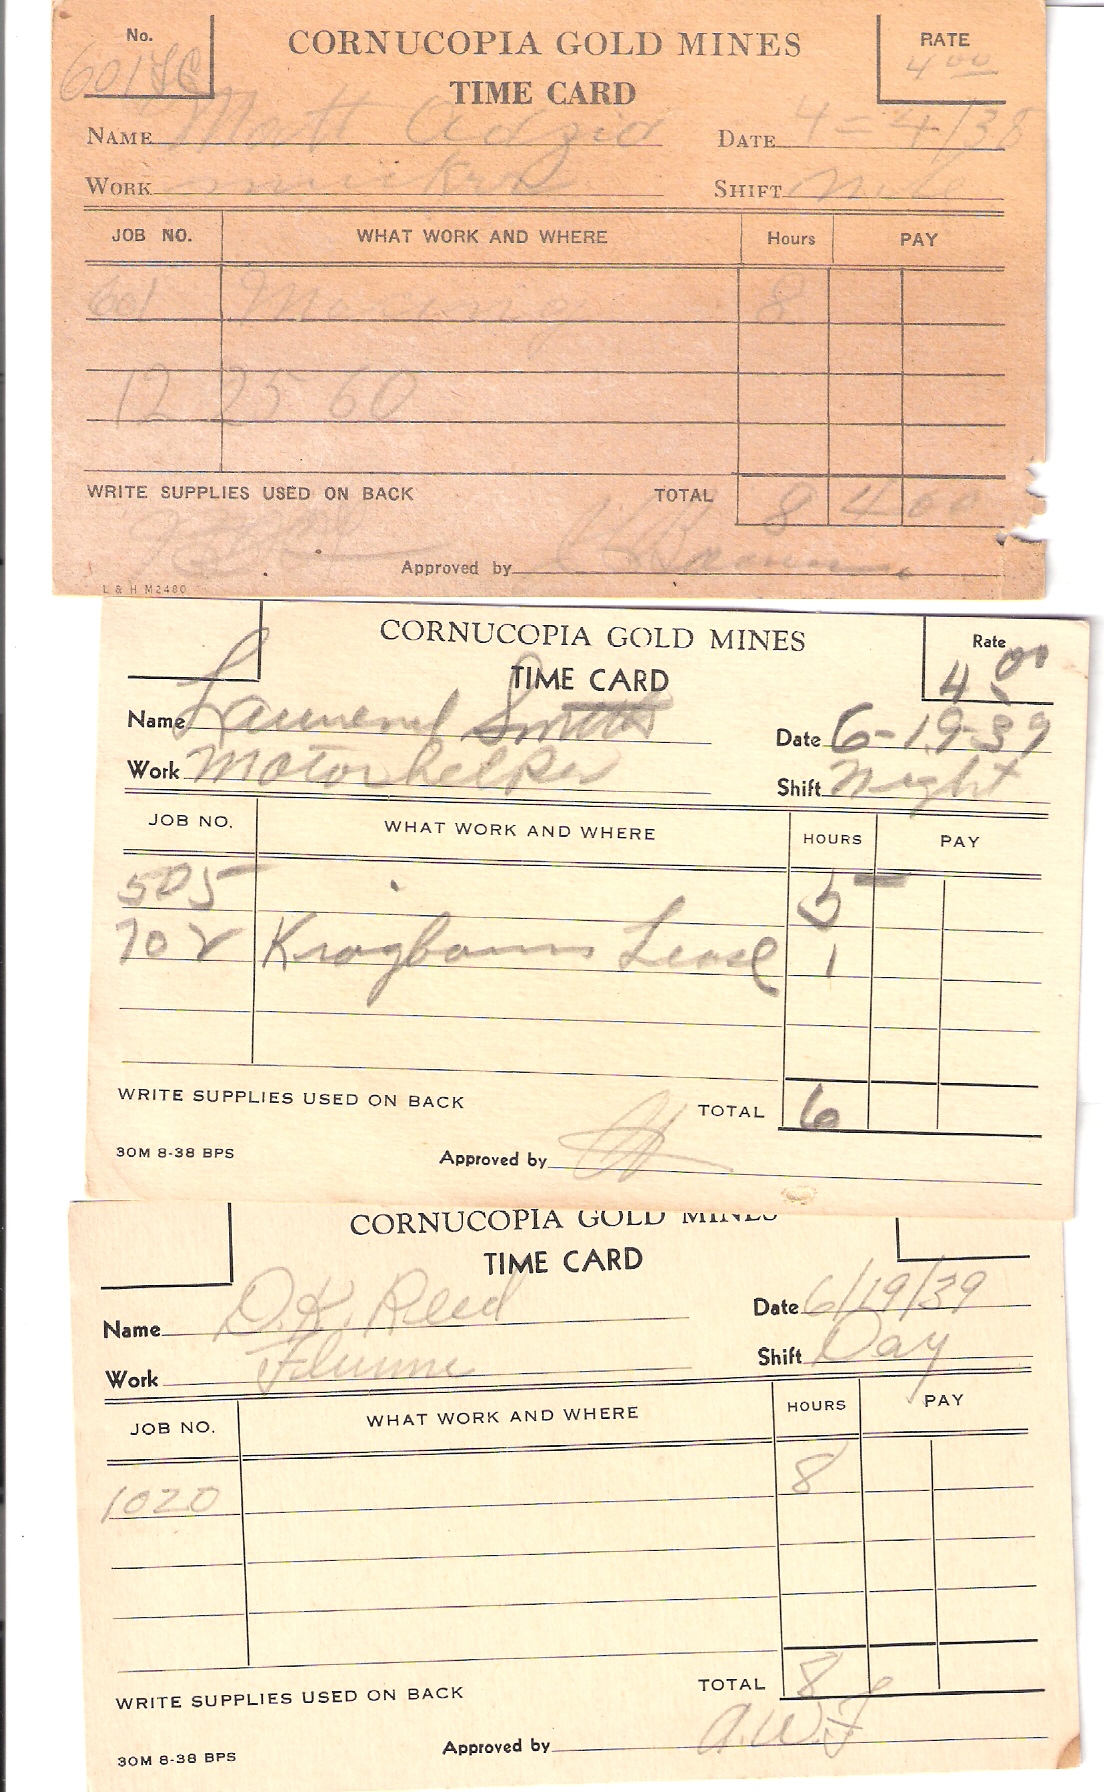 No. CORNUCOPIA GOLD MINES RATE
601 4 00
TIME CARD
NAME Matt DATE 4=4/38
WORK SHIFT
JOB NO. WHAT WORK AND WHERE Hours PAY
601 8
12 25 60
WRITE SUPPLIES USED ON BACK TOTAL 8 4 00
Approved by
L & H M2480
CORNUCOPIA GOLD MINES Rate
TIME CARD 4 00
Name Smith Date 6-19-39
Work Motor helper Shift Night
JOB NO. WHAT WORK AND WHERE HOURS PAY
505 5
702 Lease 1
WRITE SUPPLIES USED ON BACK TOTAL 6
30M 8-38 BPS Approved by
CORNUCOPIA GOLD MINES
TIME CARD
Name D.K. Reed Date 6/19/39
Work Flume Shift Day
JOB NO. WHAT WORK AND WHERE HOURS PAY
1020 8
WRITE SUPPLIES USED ON BACK TOTAL 8
30M 8-38 BPS Approved by A.W.F